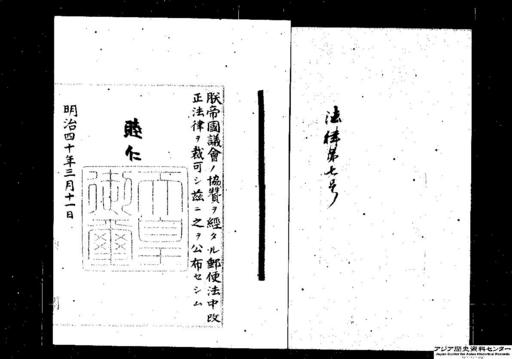 法律第七号
朕帝國議會ノ協贊ヲ經タル郵便法中改
正法律ヲ裁可シ茲ニ之ヲ公布セシム
睦仁
天皇御璽
明治四十年三月十一日
アジア歴史資料センター
Japan Center for Asian Historical Records